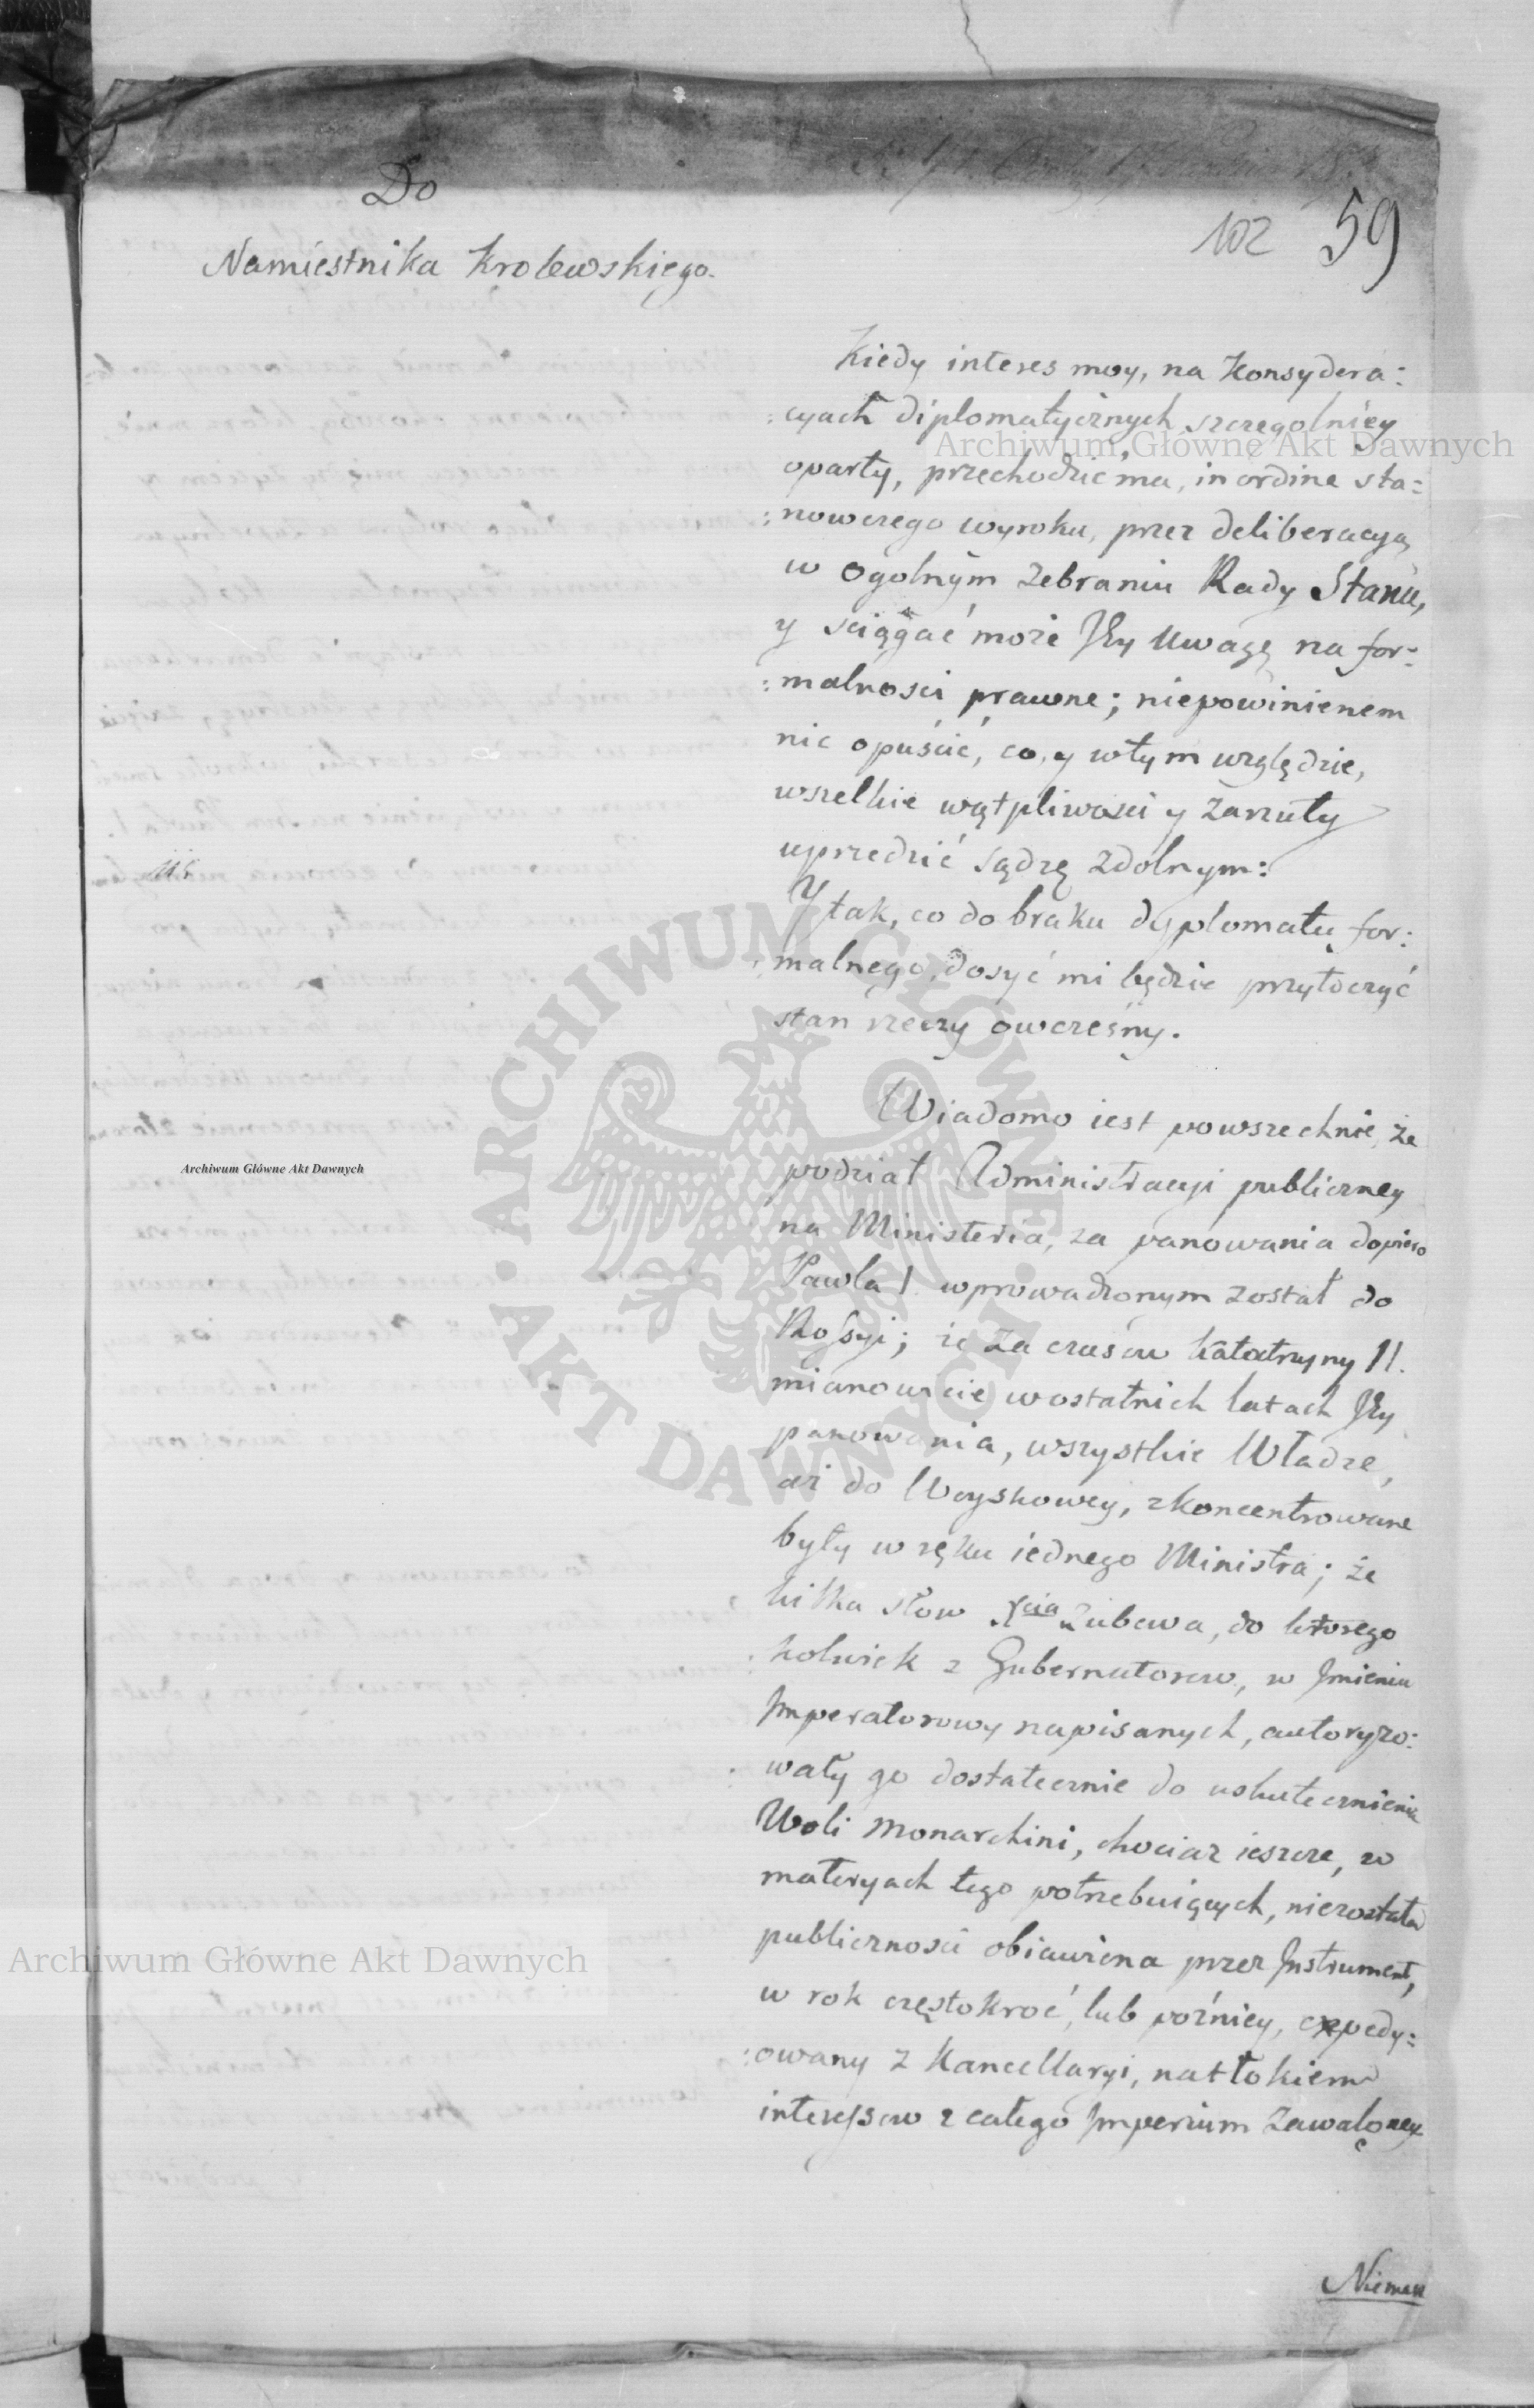 Do
Namiestnika Krolewskiego.
102 59
Kiedy interes moy, na Konsydera:
:cyach diplomatycznych szczegolniey
oparty, przechodzić ma, in ordine sta:
:nowczego wyroku, przez deliberacyą
w ogolnym zebraniu Rady Stanu,
y sciągać może Jey uwagę na for:
:malnosci prawne; niepowinienem
nic opuścić, co, y wtym względzie,
wszelkie wątpliwosci y zarzuty
uprzedzić sądzę zdolnym:
Y tak, co do braku dyplomatu for:
:malnego, dosyć mi będzie przytoczyć
stan rzeczy owczesny.
Wiadomo iest powszechnie, że
podział Administracyi publiczney
na Ministeria, za panowania dopiero
Pawla I. wprowadzonym został do
Rossyi; że za czasow Katatrzyny II.
mianowicie wostatnich latach Jey
panowania, wszystkie Władze,
aż do Woyskowey, zkoncentrowane
były w ręku iednego Ministra; że
kilka słow Xcia Zubowa, do ktorego
:kolwiek z Gubernatorow, w Jmieniu
Jmperatorowy napisanych, autoryzo:
:wały go dostatecznie do uskutecznienia
Woli Monarchini, chociaz ieszcze, w
materyach tego potrzebuiących, niezostała
publicznosci obiawiona przez Jnstrument,
w rok częstokroć, lub poźniey, expedy:
:owany z Kancellaryi, natłokiem
interessow z całego Jmperium zawaloney
Niemasz
Archiwum Główne Akt Dawnych
Archiwum Główne Akt Dawnych
Archiwum Główne Akt Dawnych
ARCHIWUM GŁÓWNE AKT DAWNYCH